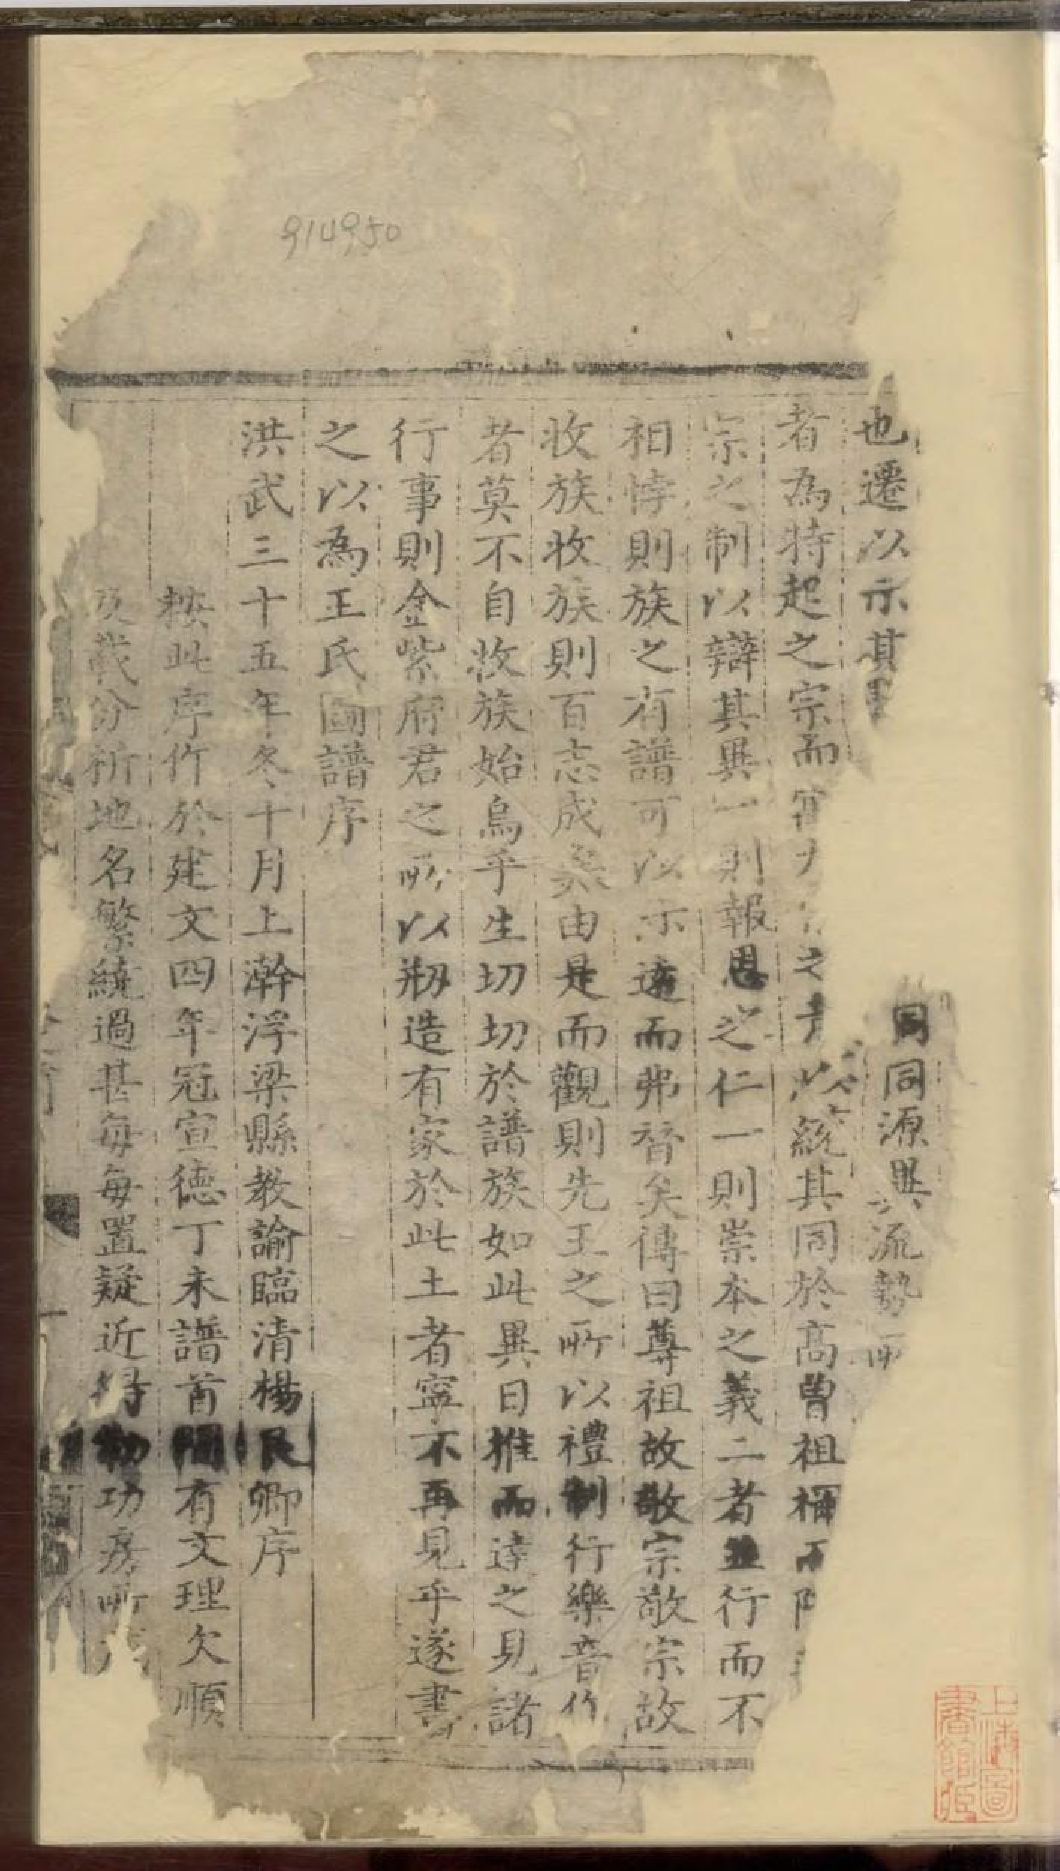 914950
也遷以示其 同同源異流勢所
者為特起之宗而 之 以統其同於高曾祖禰而
宗之制以辯其異一則報恩之仁一則崇本之義二者並行而不
相悖則族之有譜可以示遠而弗替矣傳曰尊祖故敬宗敬宗故
收族收族則百志成矣由是而觀則先王之所以禮制行樂音作
者莫不自收族始烏乎生切切於譜族如此異日推而達之見諸
行事則金紫府君之所以剏造有家於此土者寧不再見乎遂書
之以為王氏國譜序
洪武三十五年冬十月上澣浮梁縣教諭臨清楊良卿序
按此序作於建文四年冠宣德丁未譜首間有文理欠順
及載分析地名繁繞過甚每每置疑近得勑功房所
上海圖書館藏